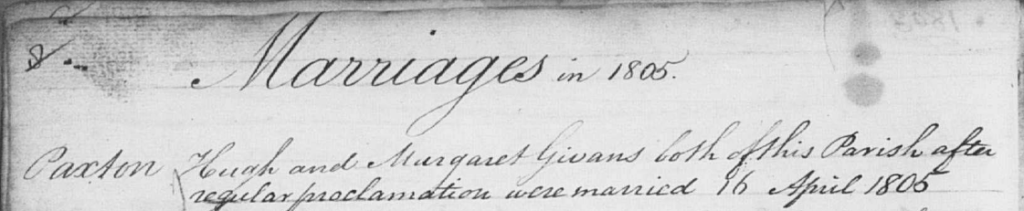 Marriages in 1805.
Paxton Hugh and Margaret Givans both of this Parish after
regular proclamation were married 16 April 1805